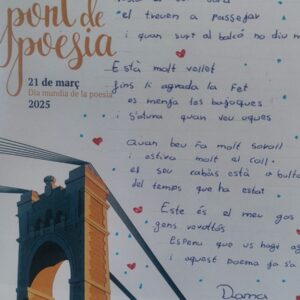 pont de
poesia
21 de març
Dia mundial de la poesia
2025
el treuen a passejar
i quan surt al balcó no diu m
Està molt vellet
fins li agrada la Fet
es menja les bajoques
i s'atura quan veu oques
Quan beu fa molt soroll
i estira molt el coll
el seu cabàs està a
del temps que ha estat
Este és el meu gos
gens vergonyós
Espero que us hagi
i aquest poema ja s'a
Dama